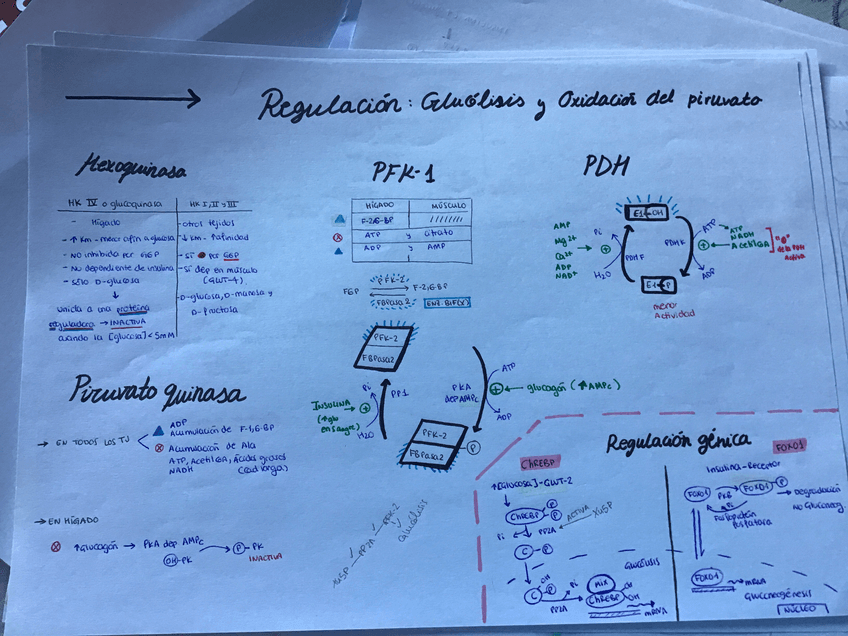 Regulación: Glucólisis y Oxidación del piruvato
Hexoquinasa
HK IV o glucoquinasa
- Hígado
- ↑ Km - menor afin a glucosa
- NO inhibida por G6P
- No dependiente de insulina
- sólo D-glucosa
↓
unida a una proteína
reguladora → INACTIVA
cuando la [glucosa] < 5mM
HK I, II y III
- otros tejidos
- ↓ Km - ↑ afinidad
- Sí por G6P
- Sí dep en músculo
(GLUT-4)
- D-glucosa, D-manosa y
D-fructosa
PFK-1
HÍGADO MÚSCULO
F-2,6-BP ////////
ATP y citrato
ADP y AMP
F6P PFK-2 F-2,6-BP
FBPasa2 ENZ. BIF(X)
PFK-2
FBPasa2
INSULINA
(↑glu
en sangre)
+
Pi
H2O
PP1
PKA
dep AMPc
ATP
ADP
+ ← glucagón (↑AMPc)
PFK-2
FBPasa2
P
XU5P — PP2A — PFK-2
y
Glucólisis
PDH
E1-OH
AMP
Mg2+
Ca2+
ADP
NAD+
+
Pi
H2O
PDHF
PDHK
ATP
ADP
+
ATP
NADH
AcetilCoA
de la PDH
Activa
E1-P
menor
Actividad
Piruvato quinasa
→ EN TODOS LOS TJ
ADP
Acumulación de F-1,6-BP
Acumulación de Ala
ATP, Acetil CoA, Ácidos grasos
NADH (cad larga)
→ EN HÍGADO
↑Glucagón → PKA dep AMPc
OH-PK
P-PK
INACTIVA
Regulación génica
ChREBP
↑[Glucosa]-GLUT-2
ChREBP P P
Pi PP2A ← ACTIVA XU5P
C P
GLUCÓLISIS
C OH P
PP2A
Pi
Mlx
ChREBP OH OH
mRNA
FOXO1
Insulina-Receptor
FOXO1 PKB FOXO1 P → Degradación
NO Gluconeog
Pi
Fosfoproteín
fosfatasa
FOXO1
mRNA
Gluconeogénesis
NÚCLEO